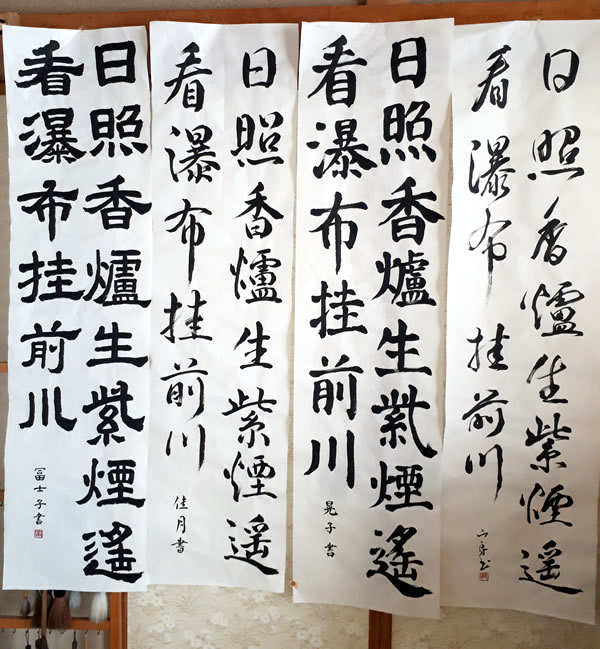 日照香爐生紫煙遙
看瀑布挂前川
日照香爐生紫煙遥
看瀑布挂前川
晃子書
日照香爐生紫煙遥
看瀑布挂前川
佳月書
日照香爐生紫煙遙
看瀑布挂前川
冨士子書